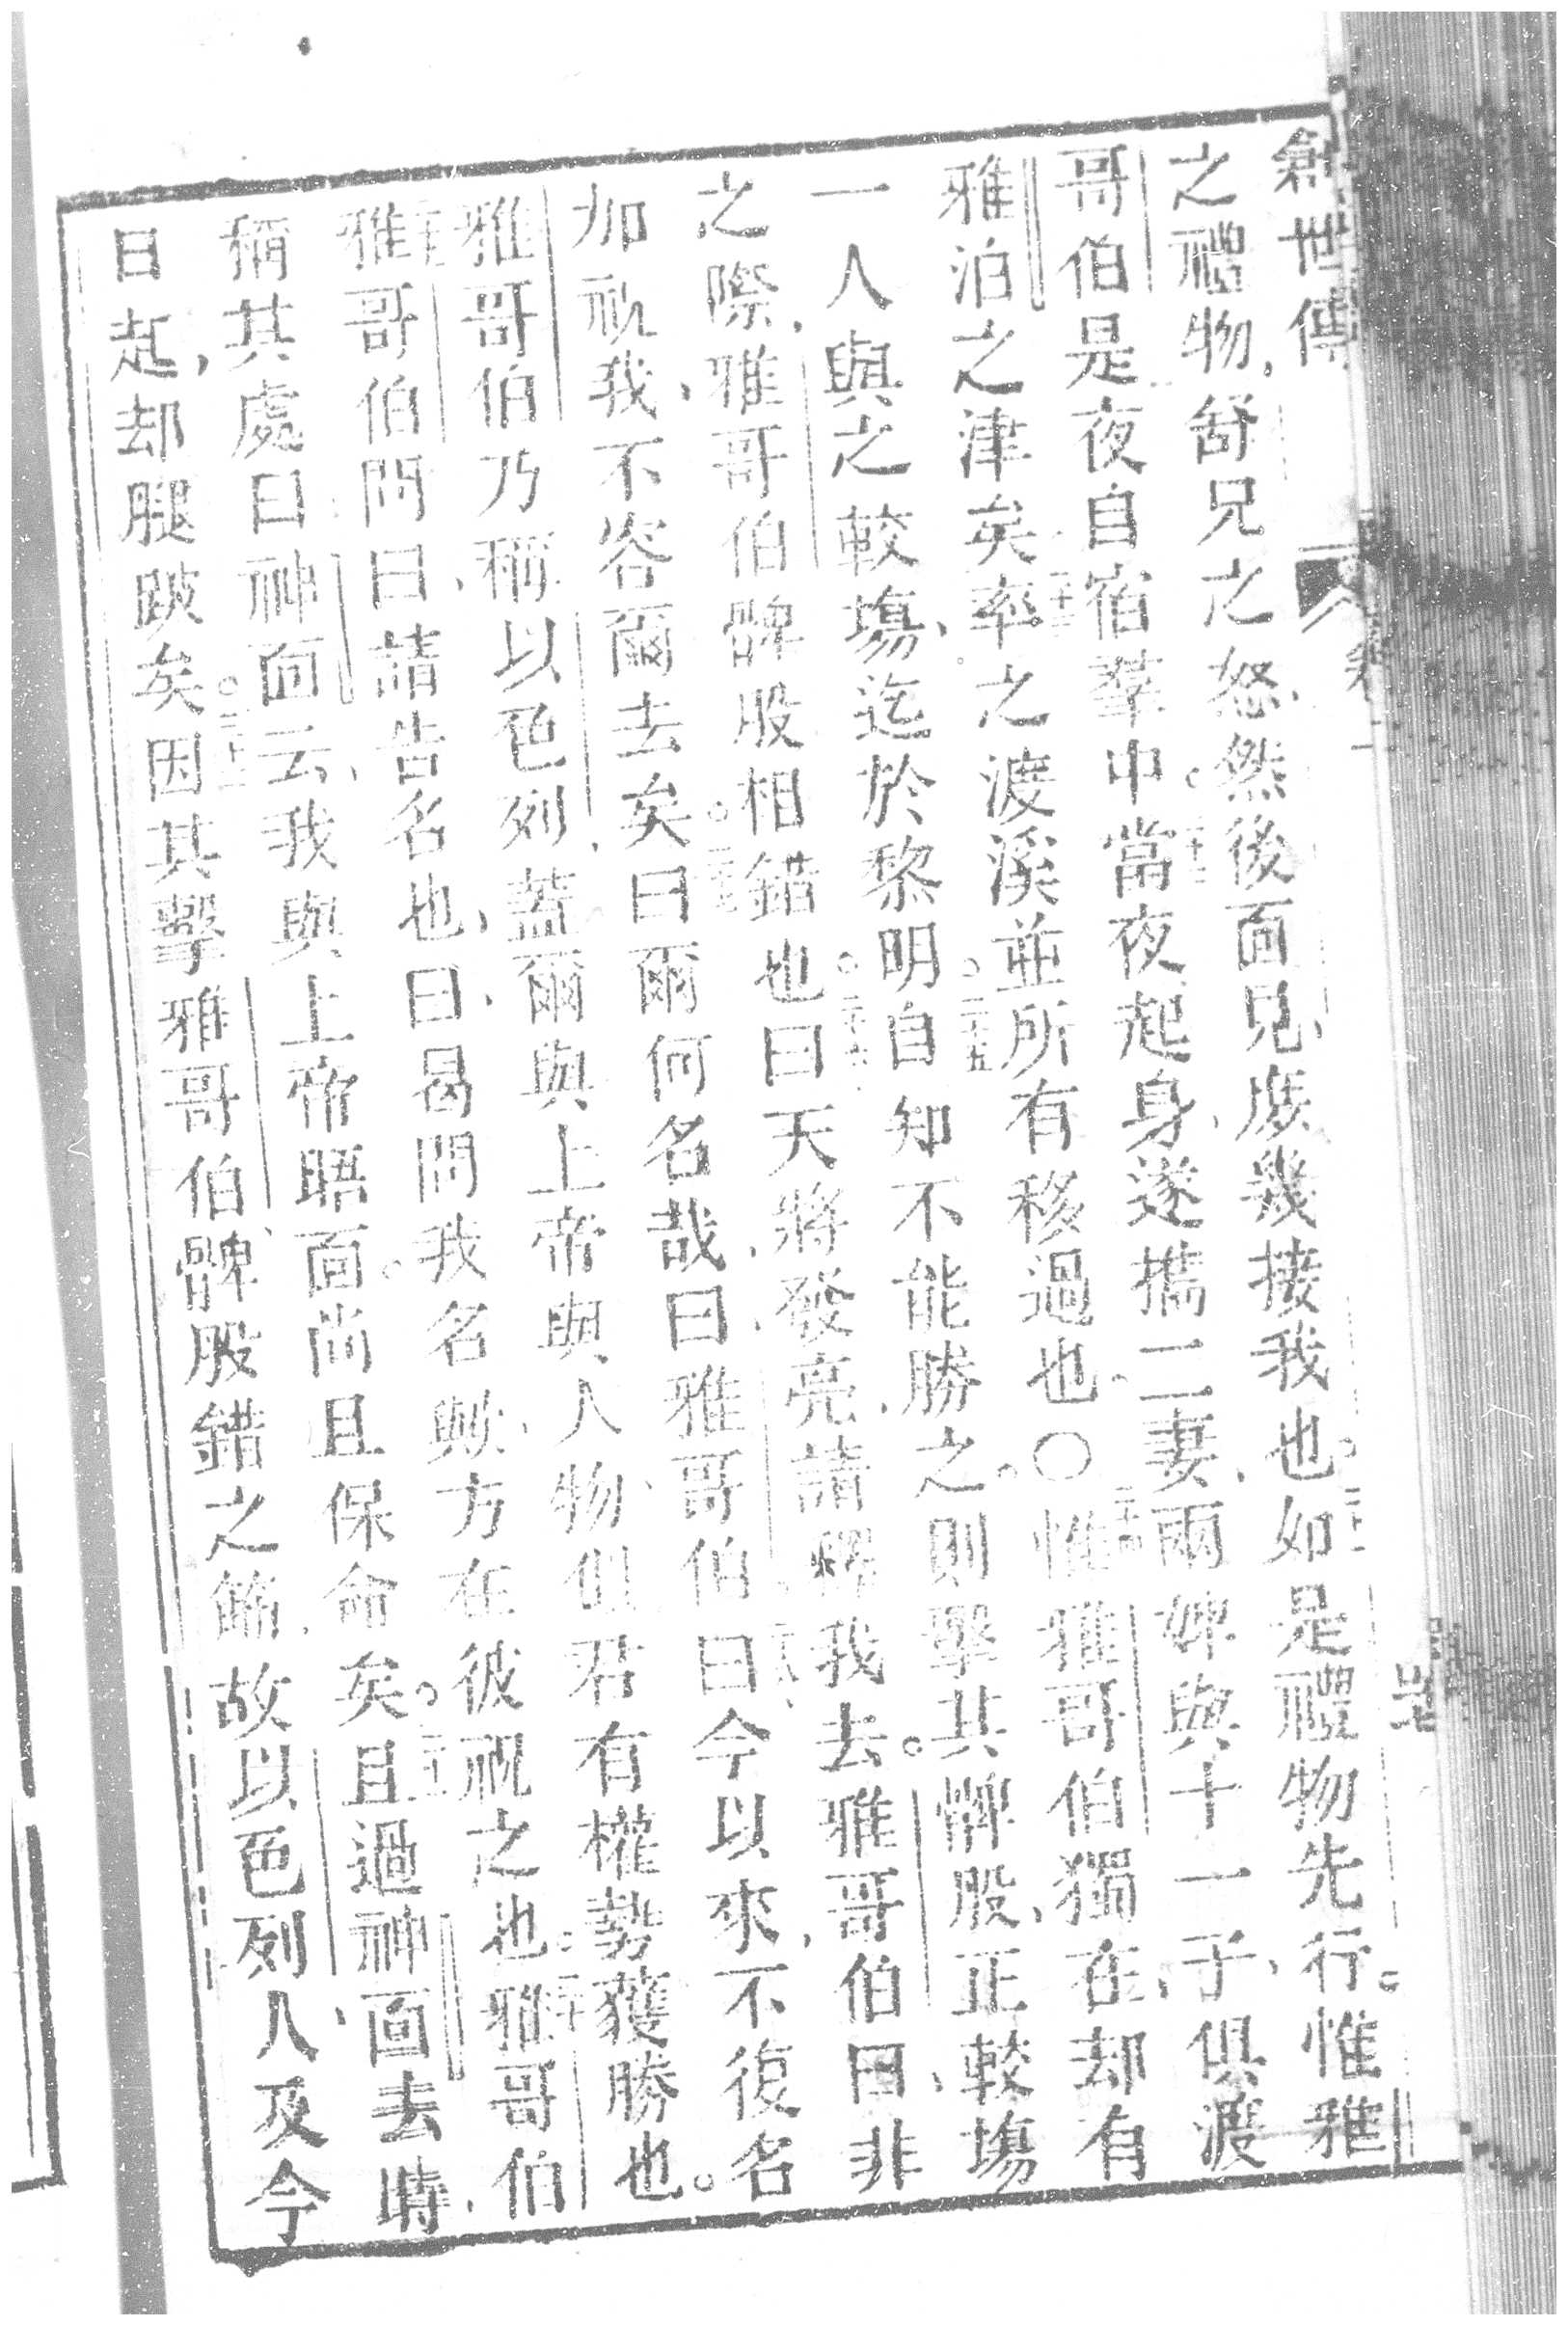 創世傳
之禮物、舒兄之怒、然後面兄、庶幾接我也。如是禮物先行。惟雅
哥伯是夜自宿羣中。當夜起身、遂攜二妻、兩婢與十一子、俱渡
雅泊之津矣。率之渡溪並所有移過也、〇惟雅哥伯獨在、却有
一人與之較塲、迄於黎明。自知不能勝之。則擊其髀股、正較塲
之際、雅哥伯髀股相錯也。曰天將發亮、請釋我去。雅哥伯曰、非
加祝我、不容爾去矣。曰爾何名哉、曰雅哥伯曰今以來、不復名
雅哥伯乃稱以色列、蓋爾與上帝與人物、俱君有權勢獲勝也。
雅哥伯問曰、請告名也、曰曷問我名歟、方在彼祝之也。雅哥伯
稱其處曰神面云、我與上帝晤面。尚且保命矣。且過神面去時、
日起、却腿跛矣。因其擊雅哥伯、髀股錯之節、故以色列人、及今